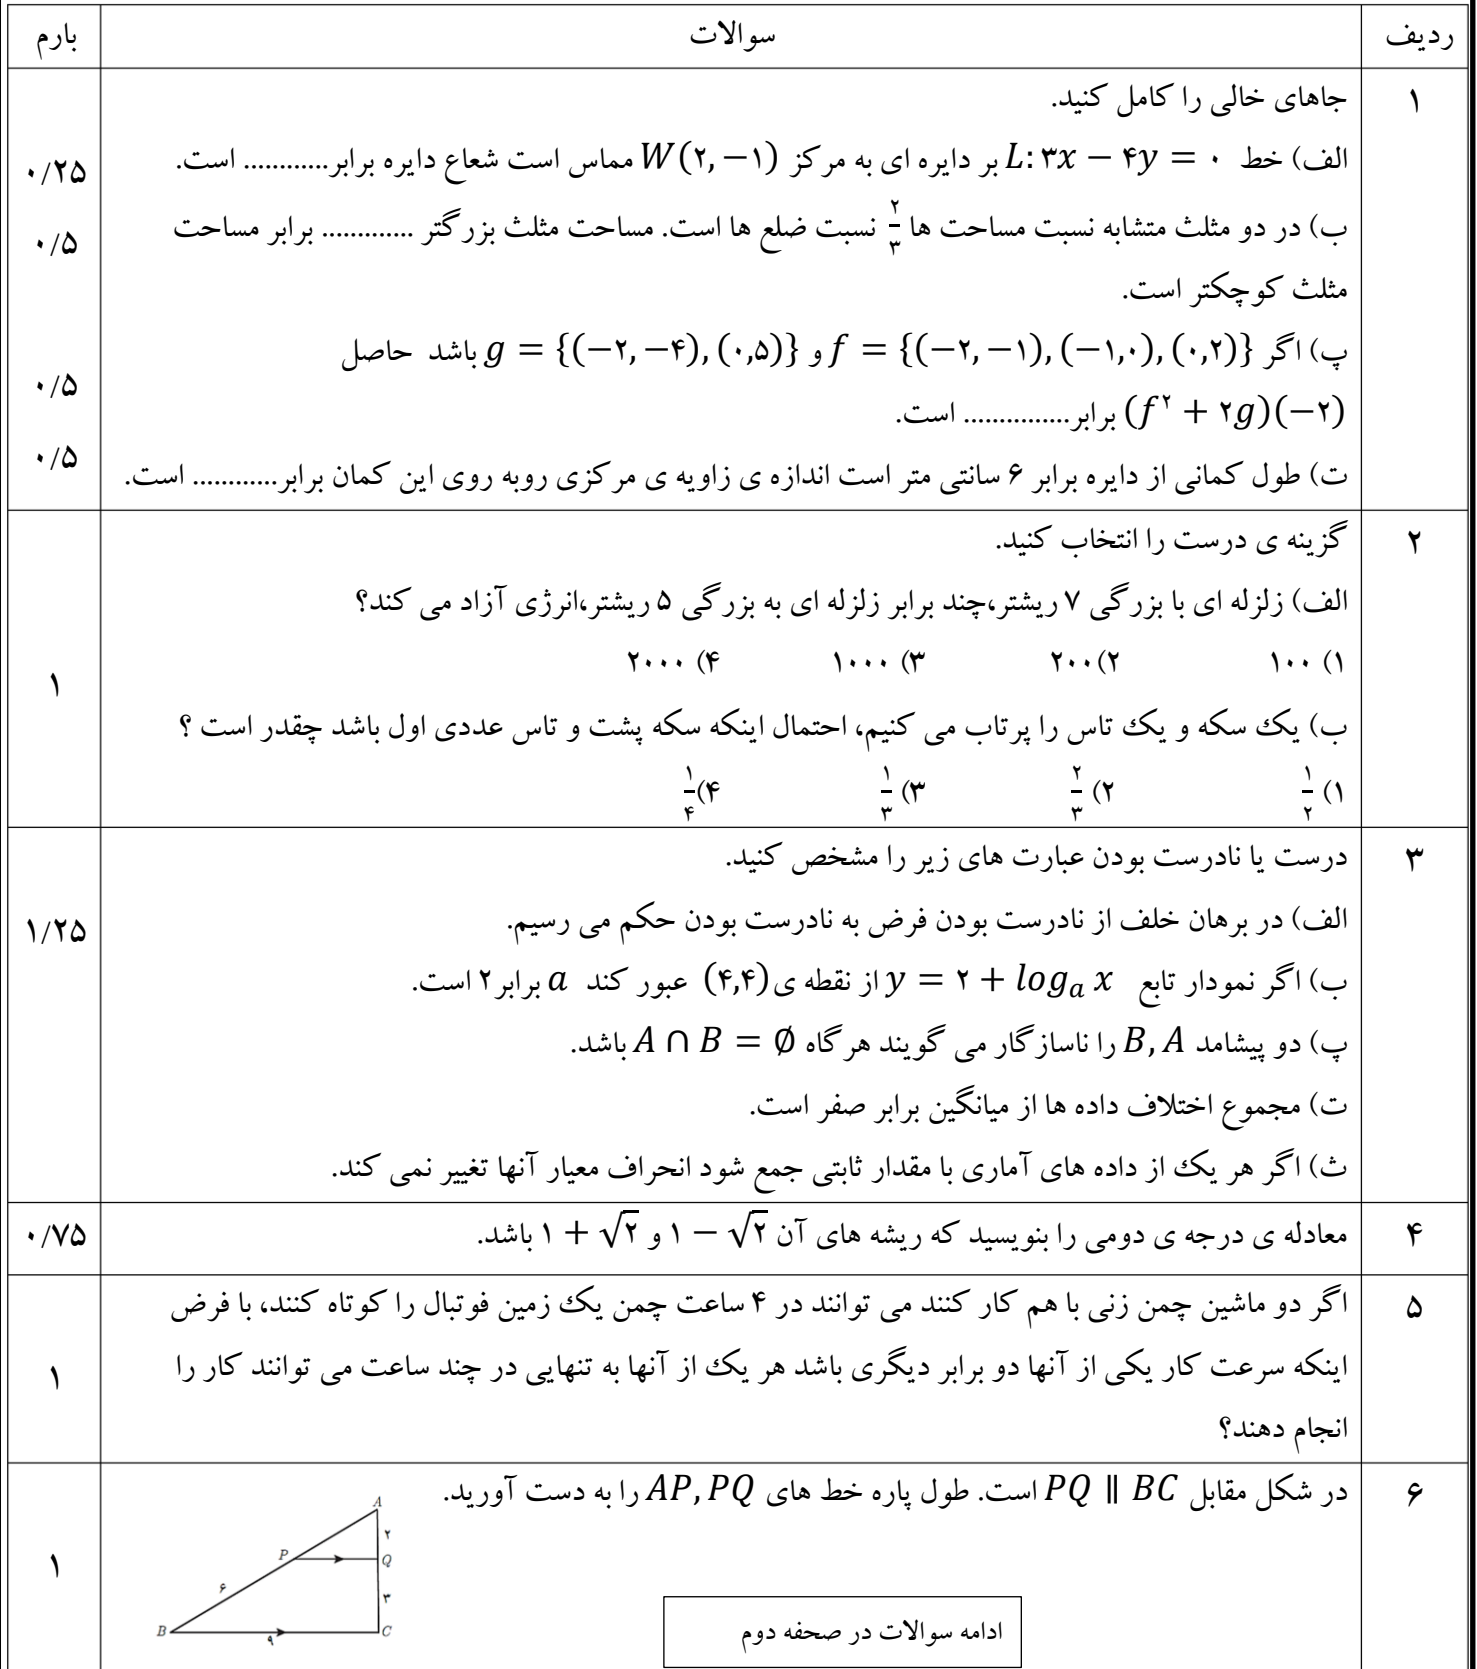 ردیف سوالات بارم
۱ جاهای خالی را کامل کنید.
الف) خط L: ۳x − ۴y = ۰ بر دایره ای به مرکز W(۲, −۱) مماس است شعاع دایره برابر............ است. ۰/۲۵
ب) در دو مثلث متشابه نسبت مساحت ها ۲/۳ نسبت ضلع ها است. مساحت مثلث بزرگتر ............. برابر مساحت ۰/۵
مثلث کوچکتر است.
پ) اگر f = {(−۲, −۱), (−۱,۰), (۰,۲)} و g = {(−۲, −۴), (۰,۵)} باشد حاصل
(f² + ۲g)(−۲) برابر............... است. ۰/۵
ت) طول کمانی از دایره برابر ۶ سانتی متر است اندازه ی زاویه ی مرکزی روبه روی این کمان برابر............ است. ۰/۵
۲ گزینه ی درست را انتخاب کنید.
الف) زلزله ای با بزرگی ۷ ریشتر،چند برابر زلزله ای به بزرگی ۵ ریشتر،انرژی آزاد می کند؟
۱) ۱۰۰ ۲)۲۰۰ ۳) ۱۰۰۰ ۴) ۲۰۰۰
۱
ب) یک سکه و یک تاس را پرتاب می کنیم، احتمال اینکه سکه پشت و تاس عددی اول باشد چقدر است ؟
۱) ۱/۲ ۲) ۲/۳ ۳) ۱/۳ ۴)۱/۴
۳ درست یا نادرست بودن عبارت های زیر را مشخص کنید.
الف) در برهان خلف از نادرست بودن فرض به نادرست بودن حکم می رسیم. ۱/۲۵
ب) اگر نمودار تابع y = ۲ + logₐ x از نقطه ی (۴,۴) عبور کند a برابر ۲ است.
پ) دو پیشامد B, A را ناسازگار می گویند هرگاه A ∩ B = ∅ باشد.
ت) مجموع اختلاف داده ها از میانگین برابر صفر است.
ث) اگر هر یک از داده های آماری با مقدار ثابتی جمع شود انحراف معیار آنها تغییر نمی کند.
۴ معادله ی درجه ی دومی را بنویسید که ریشه های آن ۱ − √۲ و ۱ + √۲ باشد. ۰/۷۵
۵ اگر دو ماشین چمن زنی با هم کار کنند می توانند در ۴ ساعت چمن یک زمین فوتبال را کوتاه کنند، با فرض
اینکه سرعت کار یکی از آنها دو برابر دیگری باشد هر یک از آنها به تنهایی در چند ساعت می توانند کار را ۱
انجام دهند؟
۶ در شکل مقابل PQ ∥ BC است. طول پاره خط های AP, PQ را به دست آورید.
۱
A
۲
P
Q
۶
۳
B
۹
C
ادامه سوالات در صحفه دوم